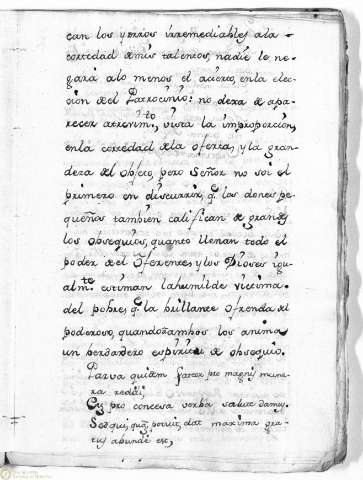 can los yerros irremediables a la
cortedad de mis talentos, nadie le ne-
gará a lo menos el acierto, en la elec-
cion de el Patrocinio: no dexa de apa-
recer atrevim.to, vista la improporcion,
en la cortedad de la oferta, y la gran-
deza del objeto, pero Señor no soi el
primero en discurrir, q. los dones pe-
queños tambien califican de grandes
los obsequios, quanto llenan todo el
poder de el Oferente, y los Dioses igu-
alm.te estiman la humilde victima
del pobre, q. la brillante ofrenda del
poderoso, quando à ambos los anima
un berdadero espiritu de obsequio.
Parva quidem fateor pro magnis mune-
ra reddi,
Cum pro concesa verba salute damus.
Sed qui, quam potuit, dat maxima gra-
tus abunde est,